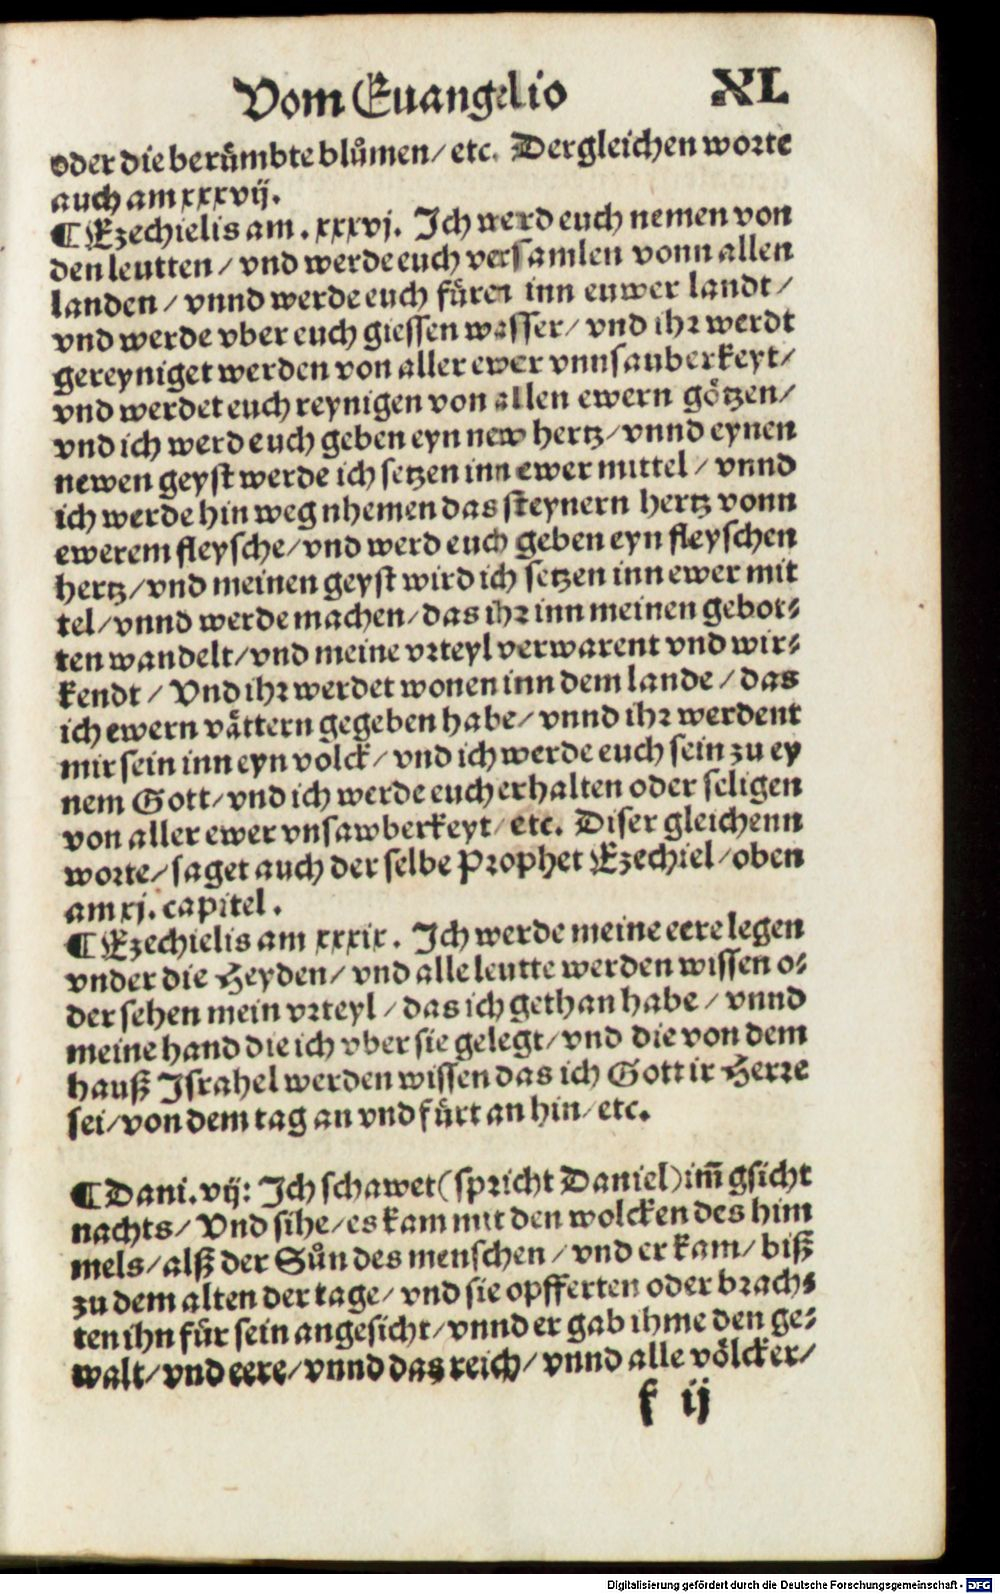 Vom Euangelio XL
oder die berůmbte blůmen/ etc. Dergleichen worte
auch am xxxvij.
¶ Ezechielis am . xxxvj. Ich werd euch nemen von
den leutten / vnd werde euch versamlen vonn allen
landen / vnnd werde euch fůren inn euwer landt/
vnd werde vber euch giessen wasser/ vnd ihr werdt
gereyniget werden von aller ewer vnnsauberkeyt/
vnd werdet euch reynigen von allen ewern götzen/
vnd ich werd euch geben eyn new hertz/ vnnd eynen
newen geyst werde ich setzen inn ewer mittel / vnnd
ich werde hin weg nhemen das steynern hertz vonn
ewerem fleysche/ vnd werd euch geben eyn fleyschen
hertz/ vnd meinen geyst wird ich setzen inn ewer mit
tel/ vnnd werde machen/ das ihr inn meinen gebot⸗
ten wandelt/ vnd meine vrteyl verwarent vnd wir⸗
kendt / Vnd ihr werdet wonen inn dem lande / das
ich ewern vättern gegeben habe/ vnnd ihr werdent
mir sein inn eyn volck/ vnd ich werde euch sein zu ey
nem Gott/ vnd ich werde euch erhalten oder seligen
von aller ewer vnsawberkeyt/ etc. Diser gleichenn
worte/ saget auch der selbe Prophet Ezechiel/ oben
am xj. capitel.
¶ Ezechielis am xxxix. Ich werde meine eere legen
vnder die Heyden/ vnd alle leutte werden wissen o⸗
der sehen mein vrteyl / das ich gethan habe / vnnd
meine hand die ich vber sie gelegt/ vnd die von dem
hauß Israhel werden wissen das ich Gott ir Herre
sei/ von dem tag an vnd fůrt an hin/ etc.
¶ Dani. vij: Ich schawet (spricht Daniel) im̃ gsicht
nachts/ Vnd sihe/ es kam mit den wolcken des him
mels/ alß der Sůn des menschen / vnd er kam/ biß
zu dem alten der tage/ vnd sie opfferten oder brach⸗
ten ihn fůr sein angesicht/ vnnd er gab ihme den ge⸗
walt/ vnd eere/ vnnd das reich/ vnnd alle völcker/
k ij
Digitalisierung gefördert durch die Deutsche Forschungsgemeinschaft - DFG